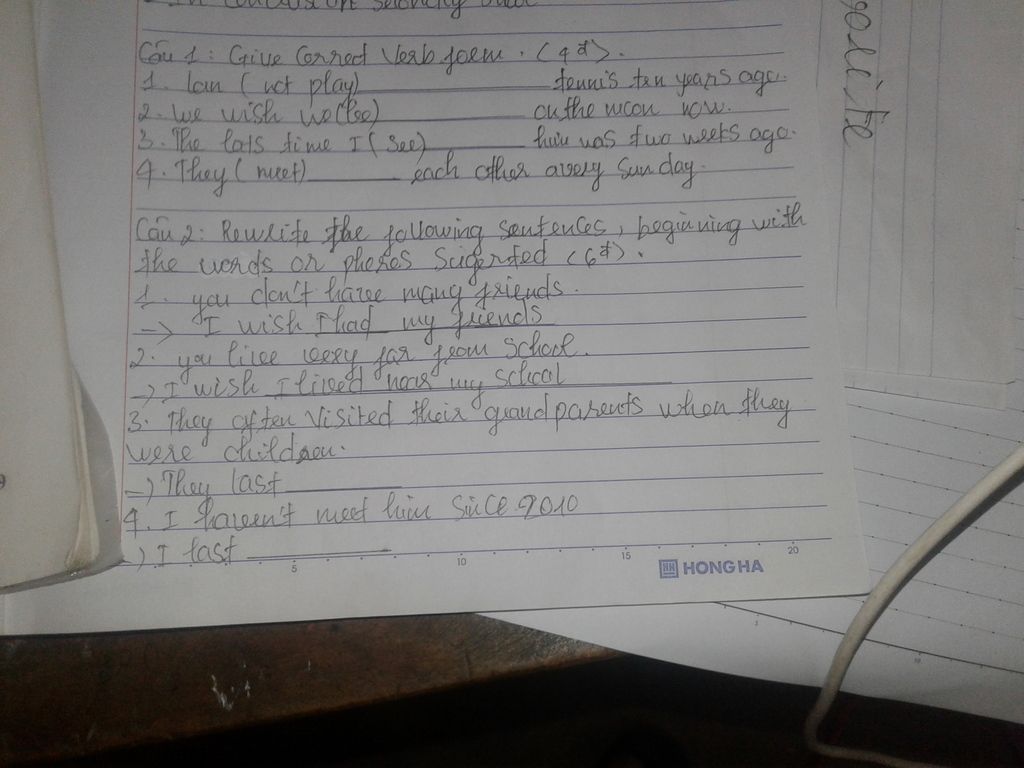 Câu 1: Give Corred Verb foem. (4đ).
1. Lan (not play) tennis ten years ago.
2. We wish we (be) on the moon now.
3. The lats time I (See) him was two weeks ago.
4. They (meet) each other avery Sunday.
Câu 2: Rewrite the following sentences, beginning with
the words or phases (6đ).
1. you don't have many friends.
-> I wish I had my friends
2. you live very far from School.
-> I wish I lived near my school
3. They often Visited their grandparents when they
were children.
-> They last
4. I haven't meet him Since 2010
-> I last
5 10 15 20
HONG HA